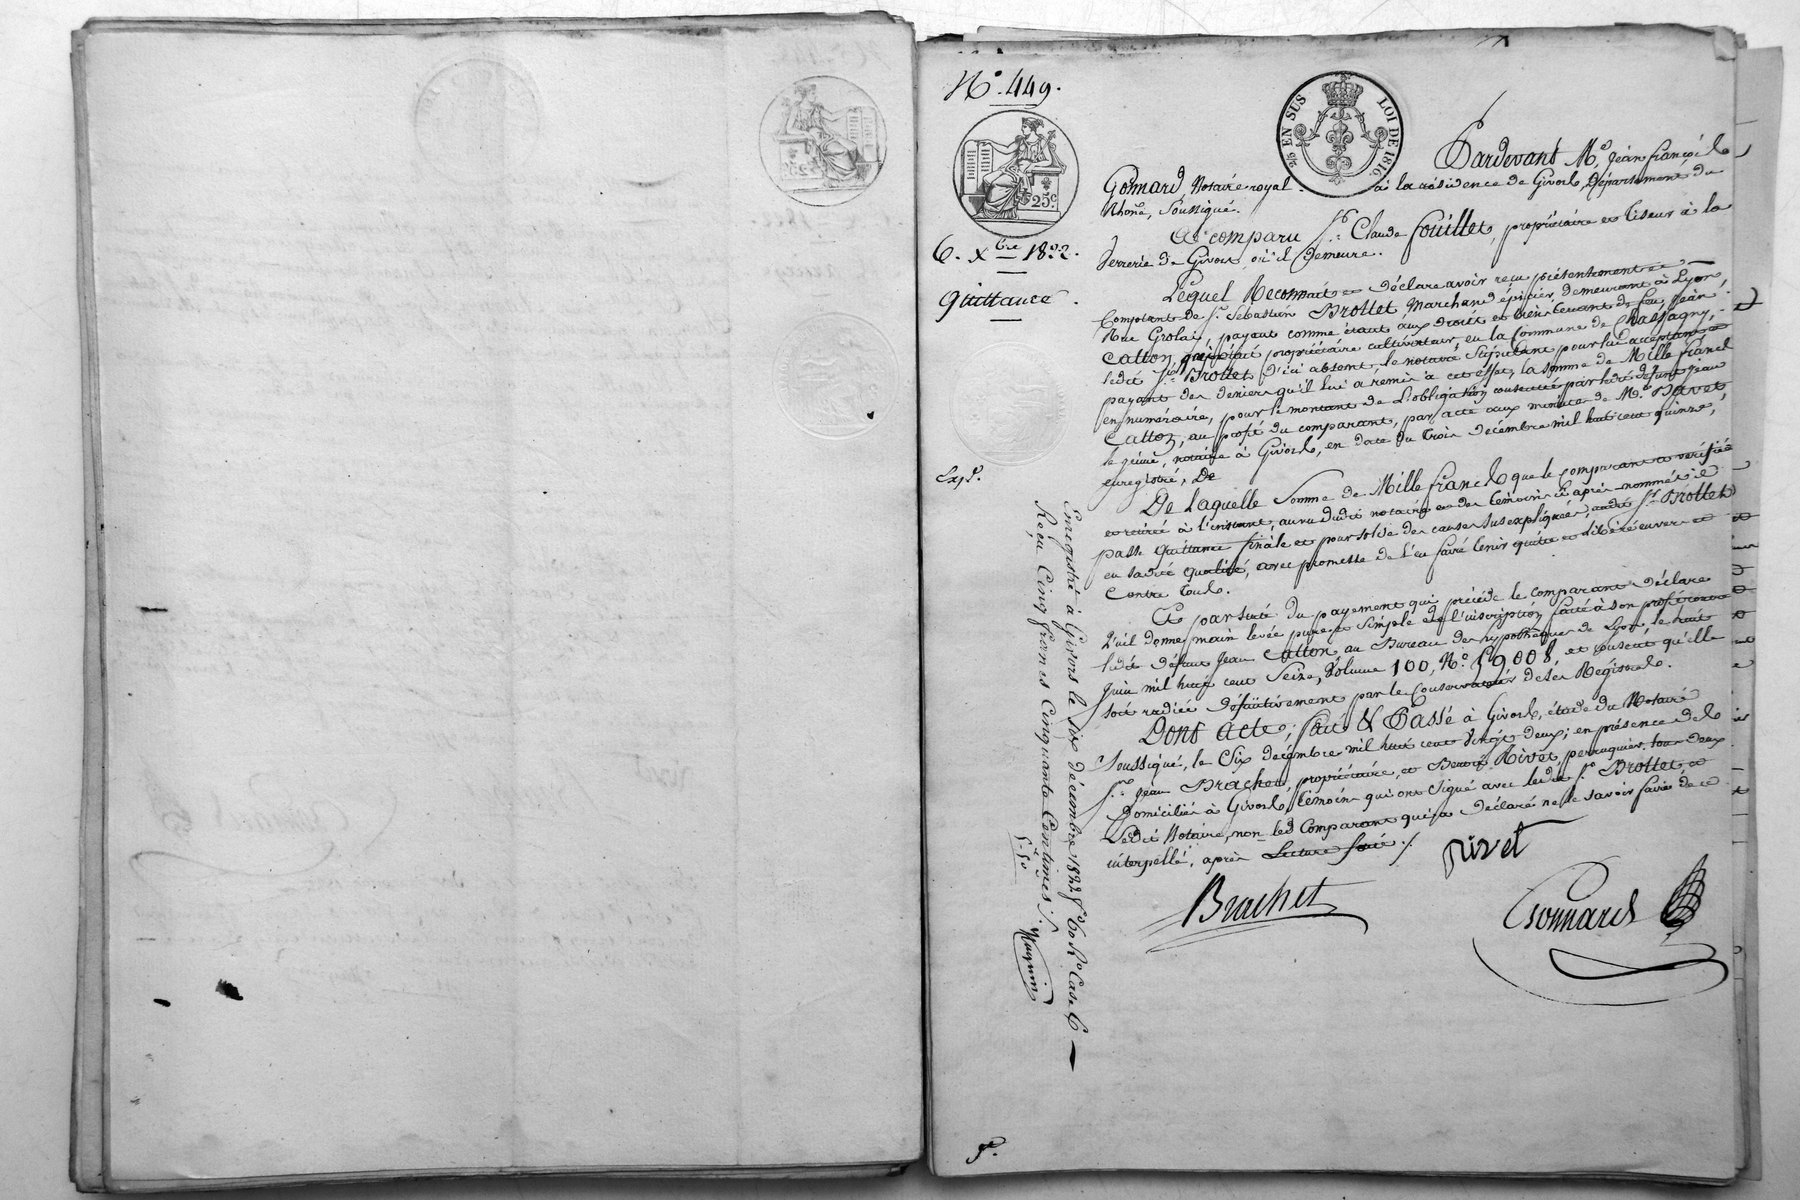 N.º 449.
¼ EN SUS LOI DE 1816
25 c
6. Xbre 1822.
Quittance.
Expé.
Pardevant Me. Jean François
Gonnard, Notaire royal à la résidence de Givors, Département du
Rhône, Soussigné.
A comparu Sr. Claude Fouillet, propriétaire et tiseur à la
Verrerie de Givors où il demeure.
Lequel Reconnait et déclare avoir reçu présentement et
Comptant de Sr. Sébastien Brottet, Marchand épicier, demeurant à Lyon,
Rue Grolai, payant comme étant aux droits et bien tenant de feu Jean
Catton, propriétaire cultivateur en la Commune de Chassagny,
ledit Sr. Brottet d'ici absent, le notaire Stipulant pour lui acceptant et
payant des deniers qu'il lui a remis à cet effet, la somme de Mille francs
en numéraire, pour le montant de L'obligation consentie par ledit défunt Jean
Catton, au profit du comparant, par acte aux minutes de Me. Davet
le jeune, notaire à Givors, en date du Trois décembre mil huit cent quinze,
enregistré, De
De Laquelle Somme de Mille francs que le comparant a vérifiée
et retirée à l'instant, au vu dudit notaire et des témoins ci après nommés, il
passe Quittance finale et pour solde des causes sus expliquées, audit Sr. Brottet
en sadite qualité, avec promesse de l'en faire tenir quitte et libéré envers et
Contre tous.
Et par suite du payement qui précède le comparant déclare
qu'il donne main levée pure et simple de l'inscription faite à son profit contre
ledit défunt Jean Catton, au Bureau des hypothèques de Lyon le huit
Juin mil huit cent Seize, Volume 100, N.º 59,008, et consent qu'elle
soit radiée définitivement par le Conservateur de ses Registres.
Dont Acte; fait & Passé à Givors, étude du Notaire
Soussigné, le Six décembre mil huit cent Vingt deux; en présence de
Srs. Jean Brachet, propriétaire, et Benoit Rivet, perruquier, tous deux
Domiciliés à Givors, témoins qui ont signé avec ledit Sr. Brottet et
Ledit Notaire, non led Comparant qui a déclaré ne le savoir faire de ce
interpellé, après Lecture faite ./.
Rivet
Brachet
Gonnard
Enregistré à Givors le Six décembre 1822 fo. 60 Ro. Case 6
Reçu Cinq francs Cinquante Centimes ./.
5.50